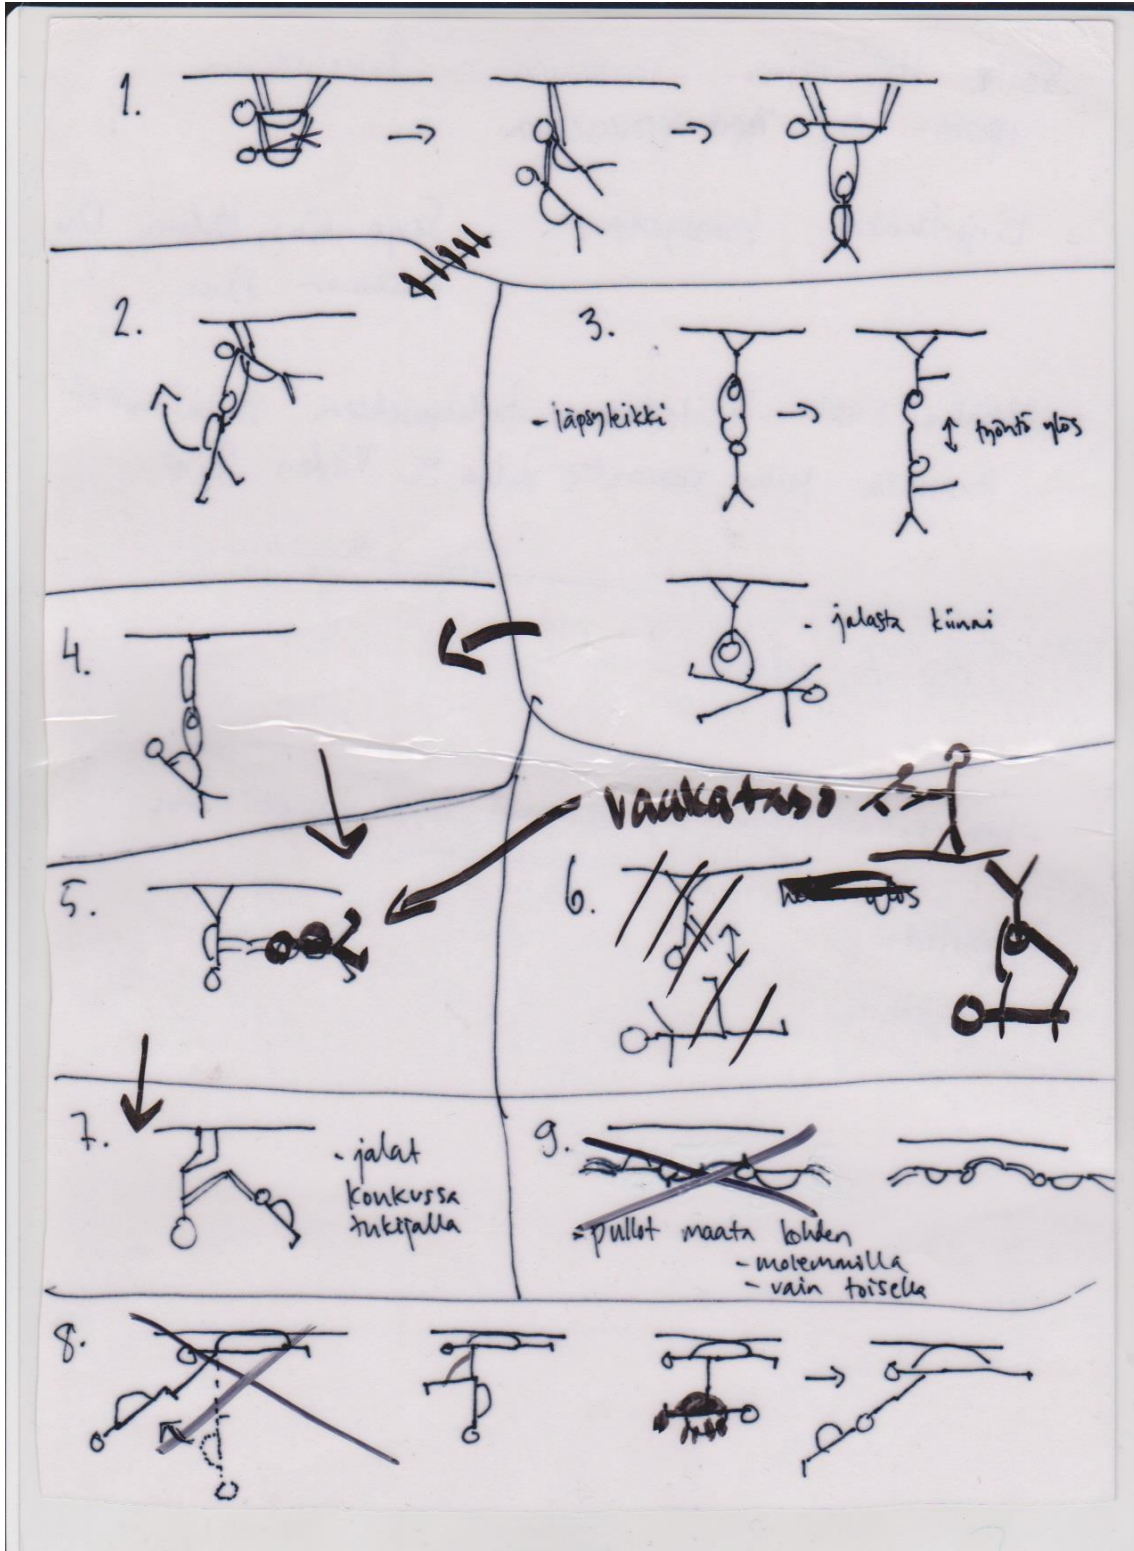 1.
2.
3.
- läpsyleikki
työntö ylös
- jalasta kiinni
4.
vaakataso
5.
6.
ylös
7.
- jalat
koukussa
tukijalla
9.
- pullot maata kohden
- molemmilla
- vain toisella
8.